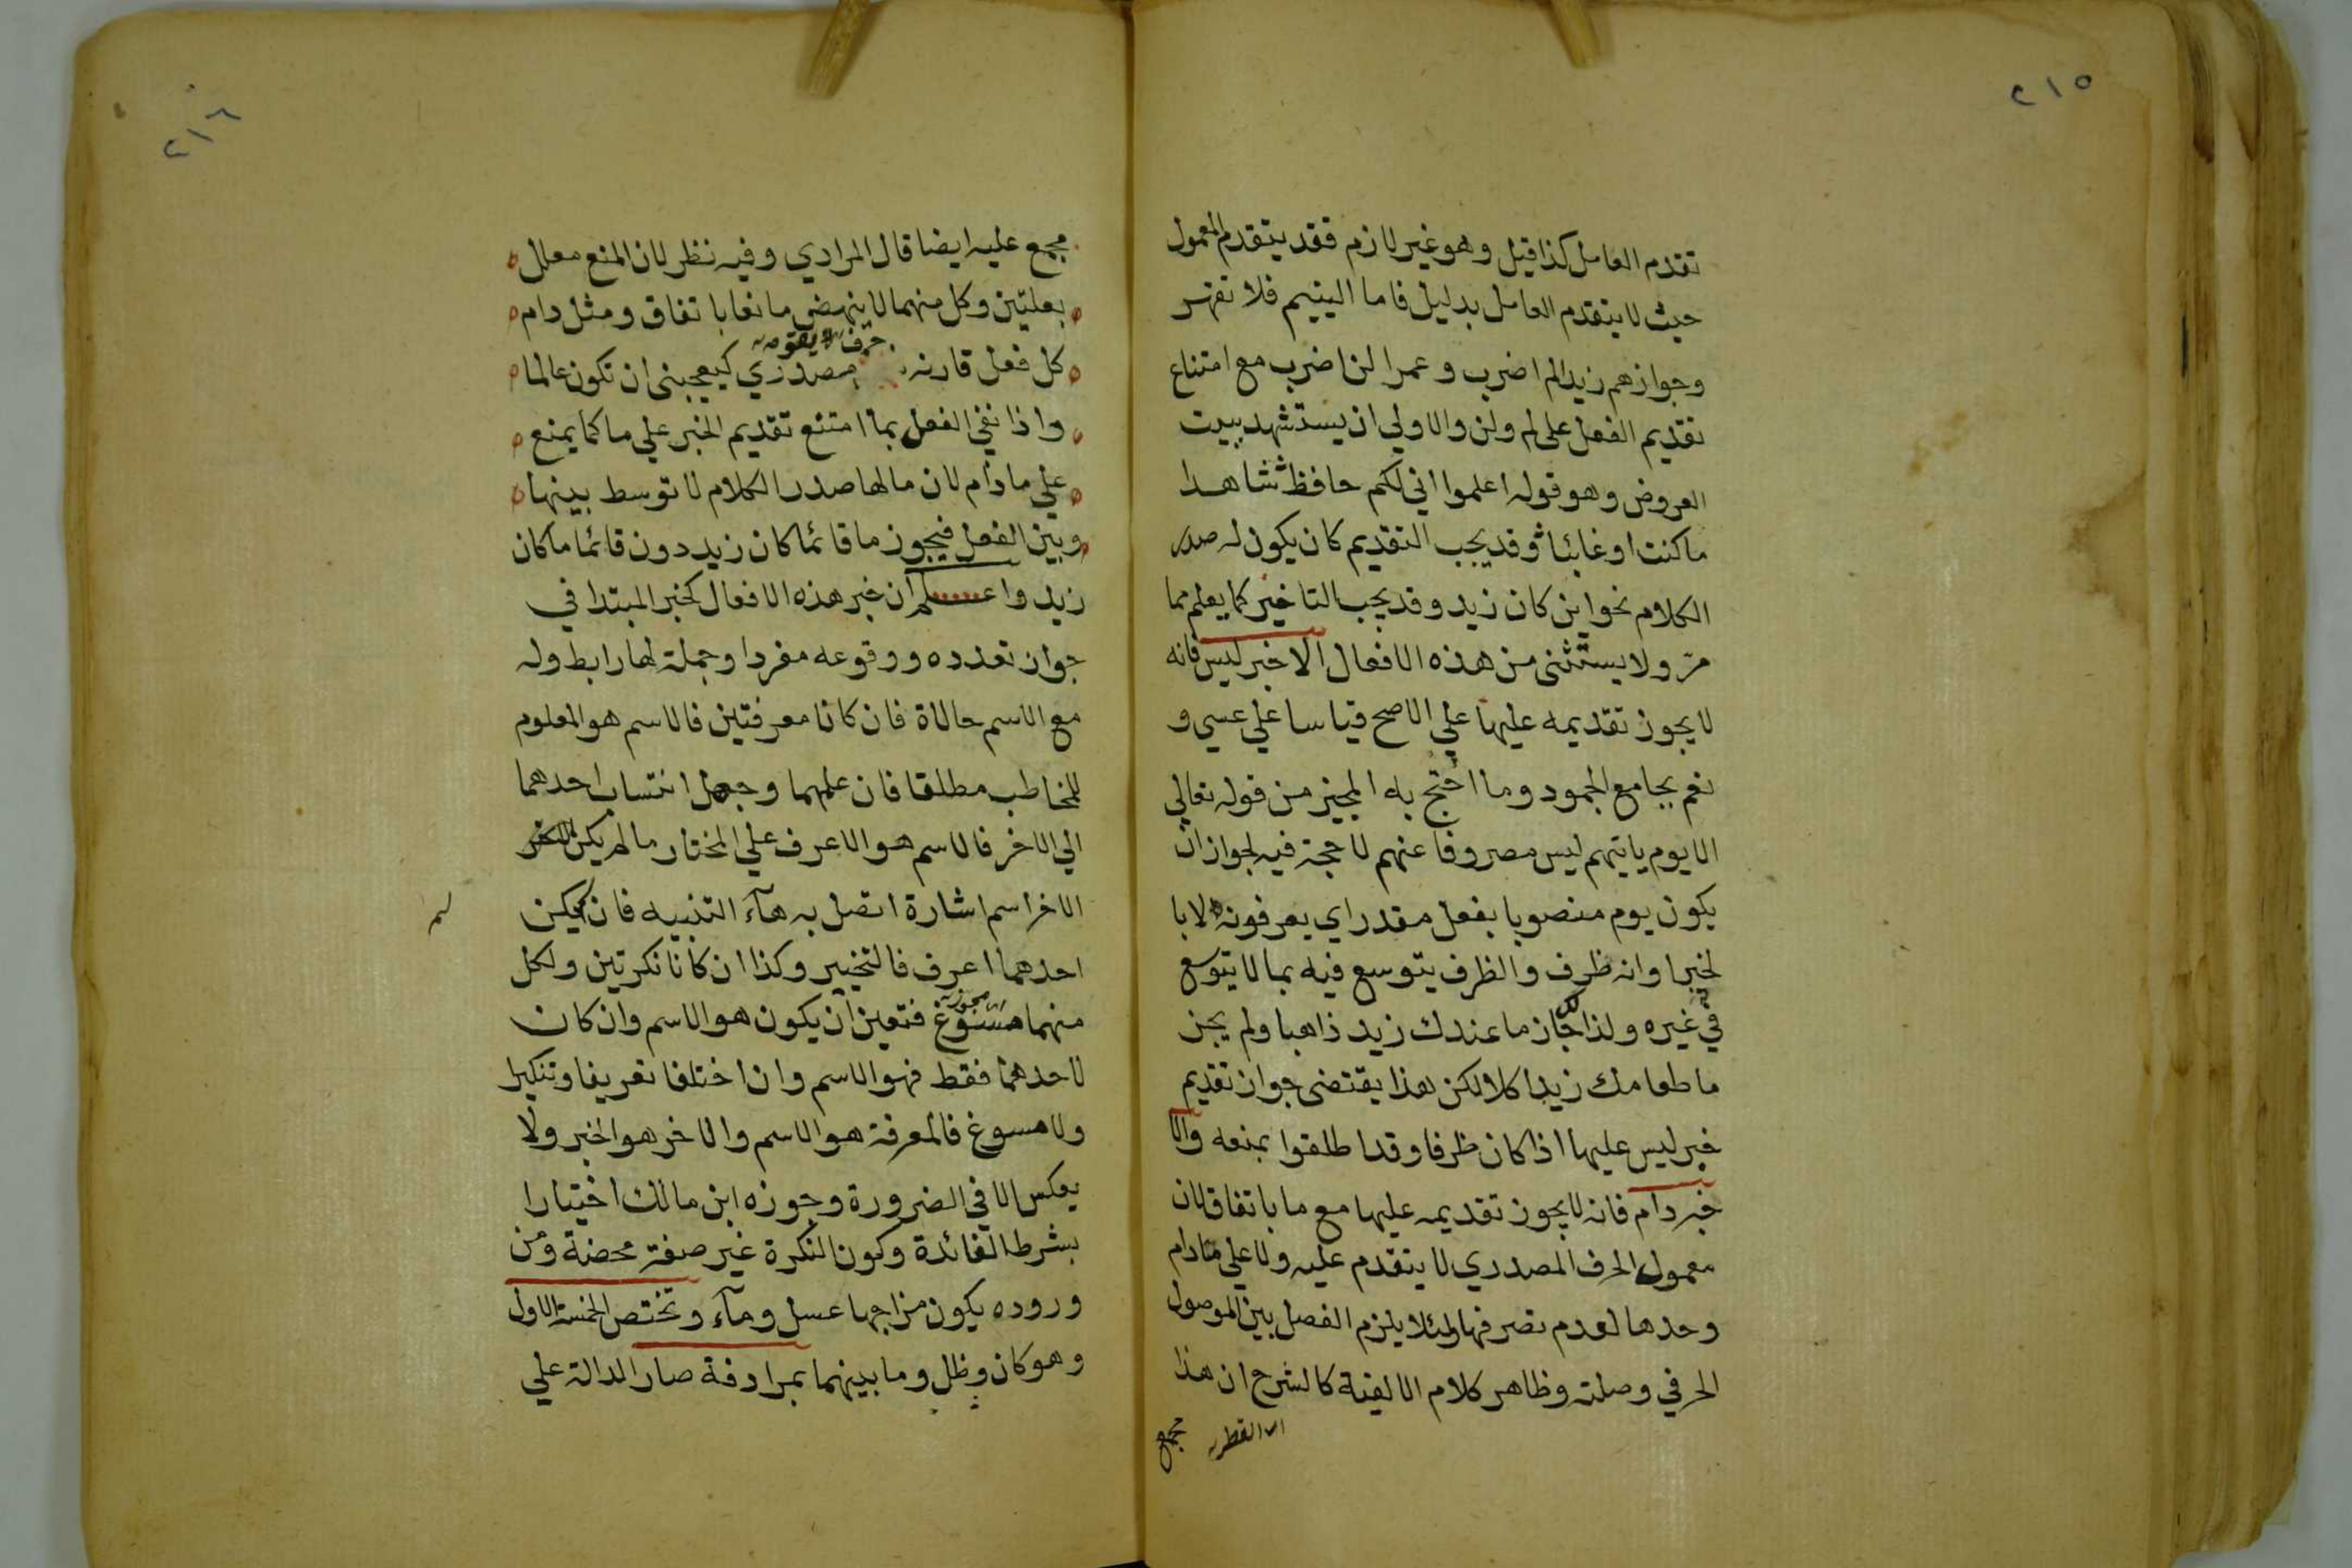 ٢١٥
تقدم العامل كذا قيل وهو غير لازم فقد يتقدم المعمول
حيث لا يتقدم العامل بدليل فاما اليتيم فلا تقهر
وجوازهم زيدا لم اضرب وعمرا لن اضرب مع امتناع
تقديم الفعل على لم ولن والاولي ان يستشهد ببيت
العروض وهو قوله اعلموا اني لكم حافظ شاهدا
ما كنت او غائبا وقد يجب التقديم كان يكون له صدر
الكلام نحو اين كان زيد وقد يجب التاخير كما يعلم مما
مرّ ولا يستثنى من هذه الافعال الا خبر ليس فانه
لا يجوز تقديمه عليها علي الاصح قياسا علي عسي و
نعم بجامع الجمود وما احتج به المجيز من قوله تعالي
الا يوم ياتيهم ليس مصروفا عنهم لا حجة فيه لجواز ان
يكون يوم منصوبا بفعل مقدر اي يعرفونه لا با
لخبر او انه ظرف والظرف يتوسع فيه بما لا يتوسع
في غيره ولذا جاز ما عندك زيد ذاهبا ولم يجز
ما طعامك زيد اكلا لكن هذا يقتضى جواز تقديم
خبر ليس عليها اذا كان ظرفا وقد اطلقوا بمنعه والا
خبر دام فانه لا يجوز تقديمه عليها مع ما باتفاق لان
معمول الحرف المصدري لا يتقدم عليه ولا علي دام
وحدها لعدم تصرفها ولئلا يلزم الفصل بين الموصول
الحرفي وصلته وظاهر كلام الالفية كالشرح ان هذا
القطر مجمع
٢١٦
مجمع عليه ايضا قال المرادي وفيه نظر لان المنع معلل
بعلتين وكل منهما لا ينهض مانعا باتفاق ومثل دام
كل فعل قارنه حرف مصدري كيعجبنى ان تكون عالما
واذا نفي الفعل بما امتنع تقديم الخبر علي ما كما يمنع
علي ما دام لان ما لها صدر الكلام لا توسط بينها
وبين الفعل فيجوز ما قائما كان زيد دون قائما ما كان
زيد واعلم ان خبر هذه الافعال كخبر المبتدا في
جواز تعدده ووقوعه مفردا وجملة لها رابط وله
مع الاسم حالاة فان كانا معرفتين فالاسم هو المعلوم
للمخاطب مطلقا فان علمهما وجهل انتساب احدهما
الي الاخر فالاسم هو الاعرف علي المختار ما لم يكن
الاخر اسم اشارة اتصل به هآء التنبيه فان لم يكن
احدهما اعرف فالتخيير وكذا ان كانا نكرتين ولكل
منهما مسوغ فتعين ان يكون هو الاسم وان كان
لاحدهما فقط فهو الاسم وان اختلفا تعريفا وتنكيرا
ولا مسوغ فالمعرفة هو الاسم والاخر هو الخبر ولا
يعكس الا في الضرورة وجوزه ابن مالك اختيارا
بشرط الفائدة وكون النكرة غير صفة محضة ومن
وروده يكون مزاجها عسل ومآء وتختص الخمسة الاول
وهو كان وظل وما بينهما بمرادفة صار الدالة علي